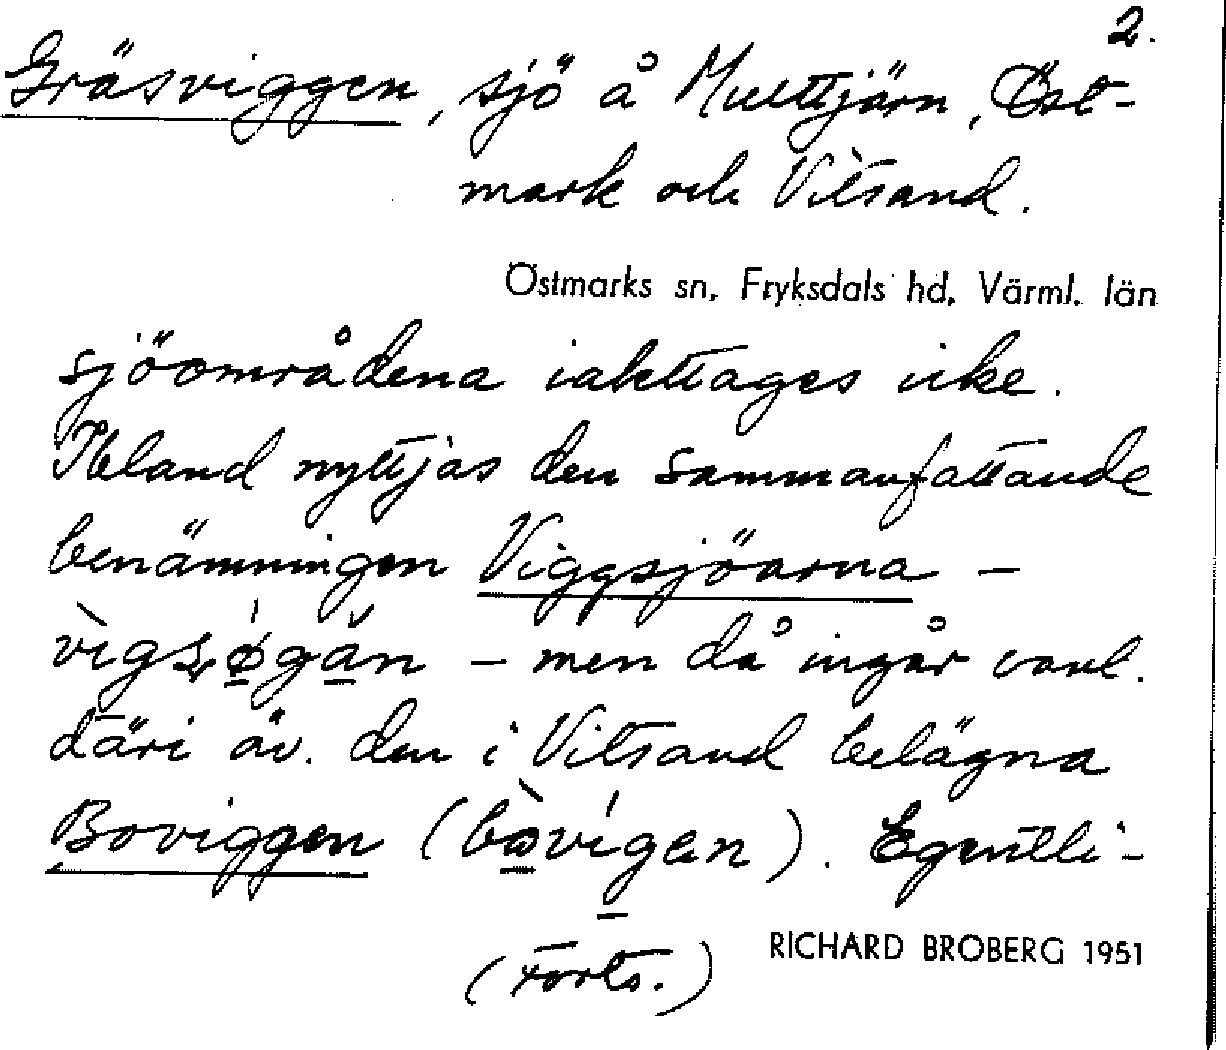 2.
Gräsviggen, sjö å Multtjärn, Öst-
mark och Vitsand.
Östmarks sn, Fryksdals hd, Värml. län
sjöområdena iakttages icke.
Ibland nyttjas den sammanfattande
benämningen Viggsjöarna –
– men då ingår vanl.
däri äv. den i Vitsand belägna
Boviggen (). Egentli-
(Forts.)
RICHARD BROBERG 1951